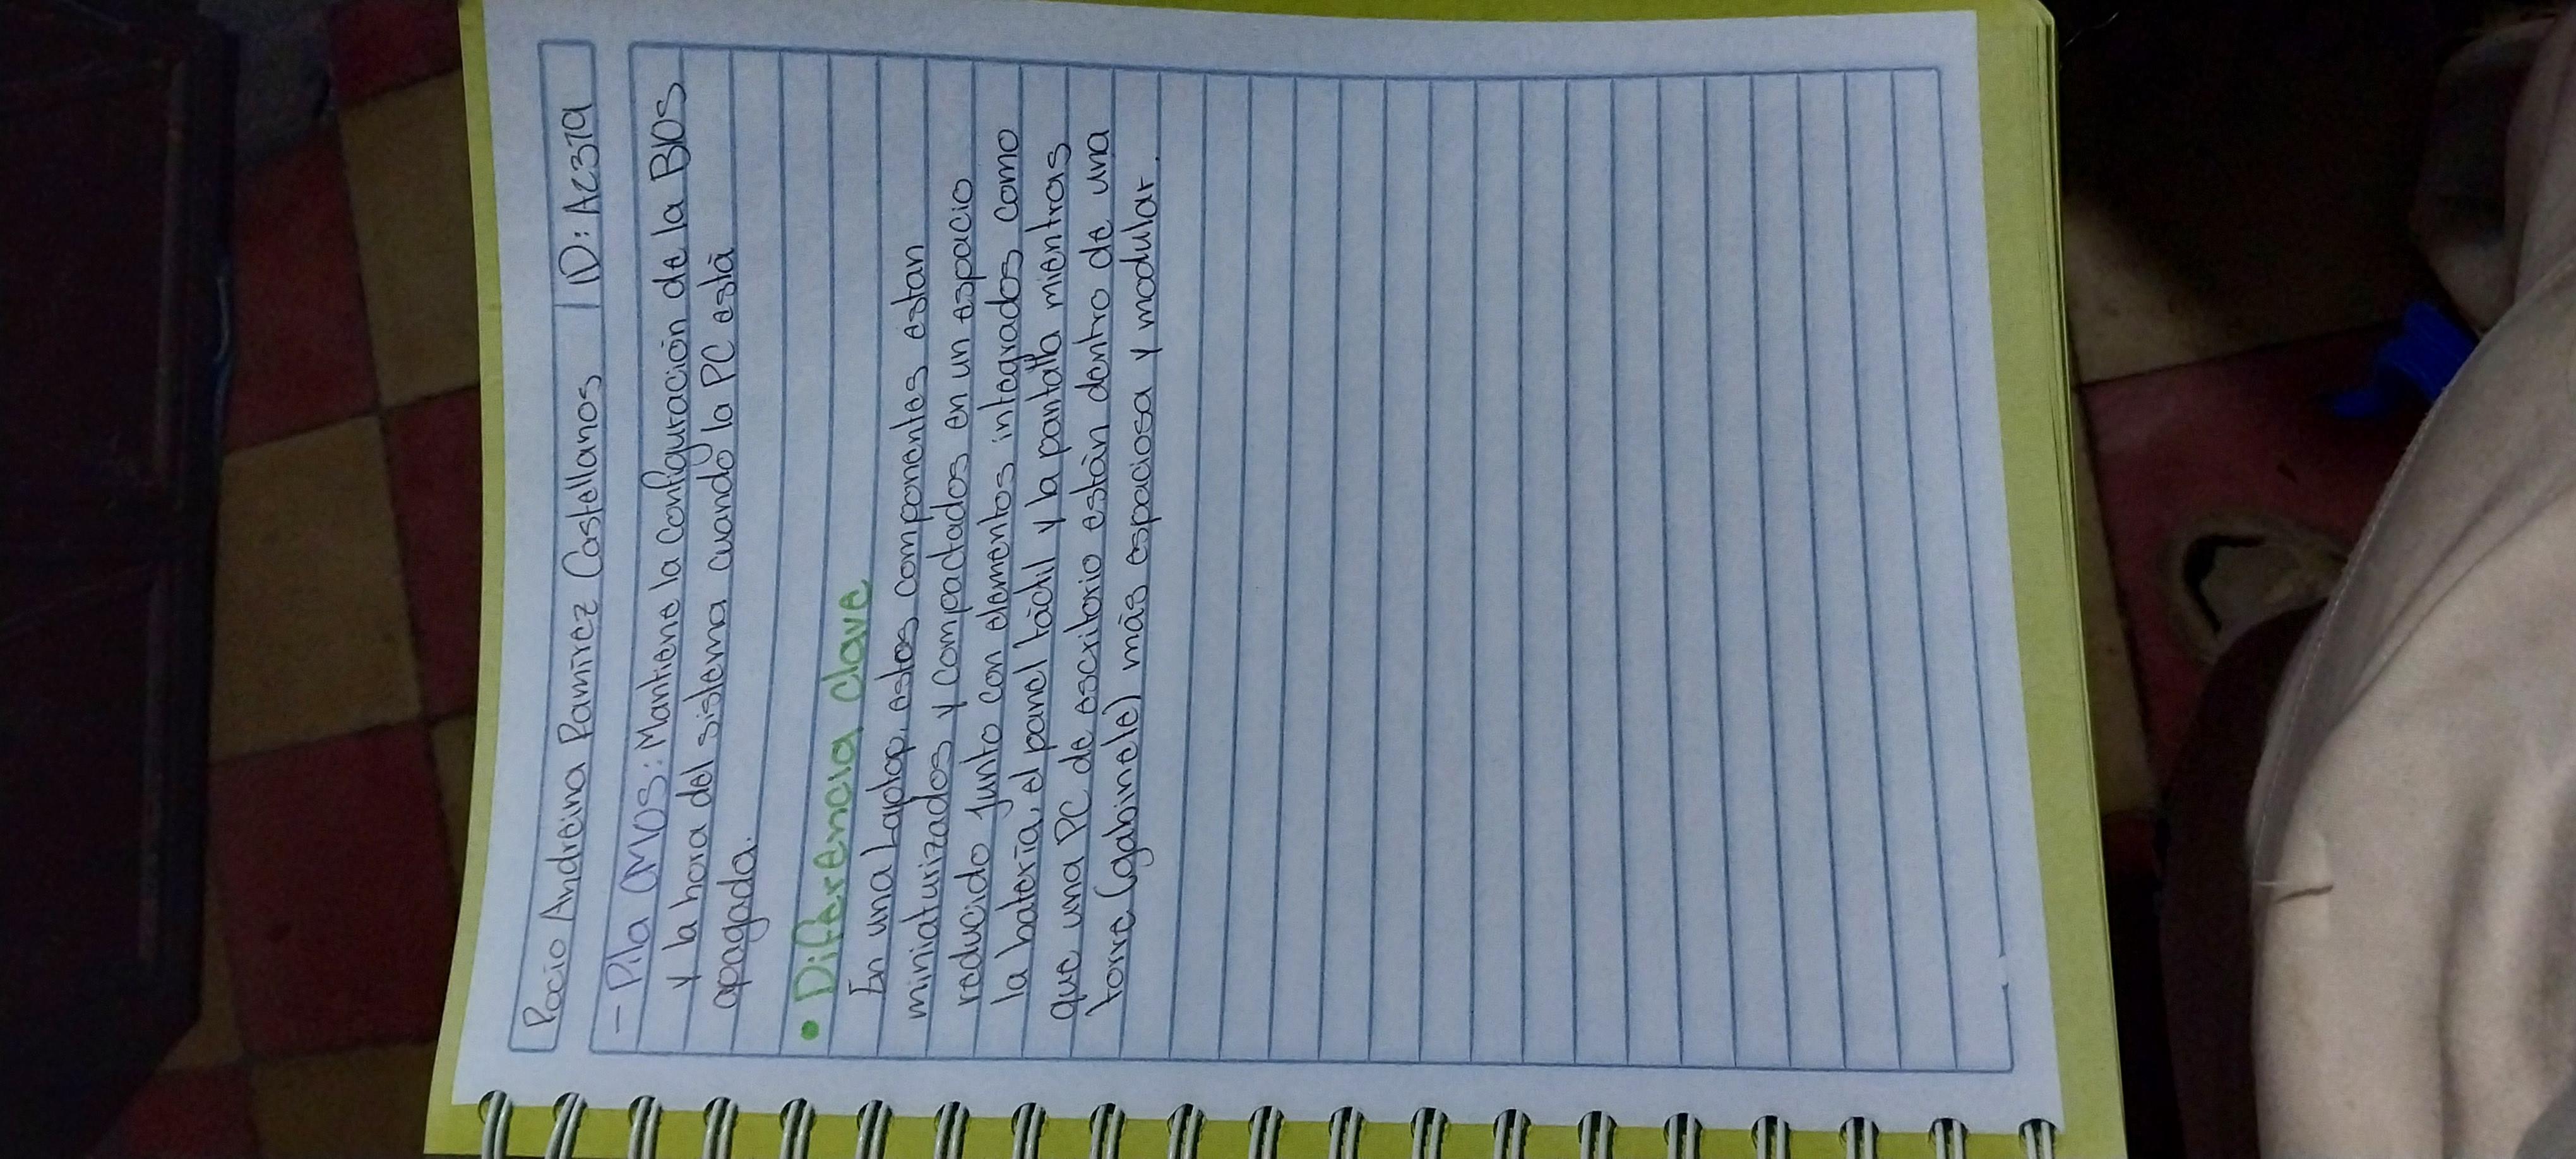 Rocio Andreina Ramirez Castellanos | ID: A2379
- Pila CMOS: Mantiene la configuración de la BIOS
y la hora del sistema cuando la PC está
apagada.
• Diferencia clave
En una Laptop, estos componentes estan
miniaturizados y compactados en un espacio
reducido junto con elementos integrados como
la batería, el panel táctil y la pantalla mientras
que una PC de escritorio están dentro de una
torre (gabinete) más espaciosa y modular.